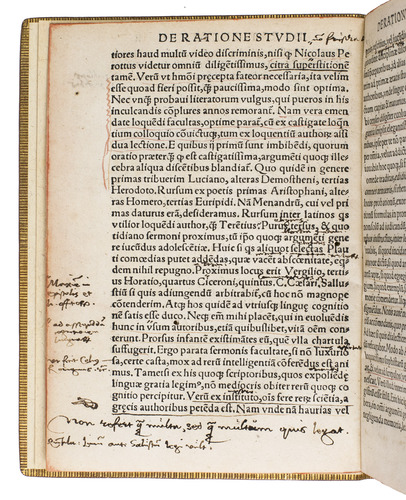 DE RATIONE STVDII
tiores haud multũ video discriminis, nisi ꝙ Nicolaus Pe
rottus videtur omniũ diligẽtissimus, citra superstitionẽ
tamẽ. Verũ vt hmõi pręcepta fateor necessaria, ita velim
esse quoad fieri possit, ꝙ̃ paucissima, modo sint optima.
Nec vnꝗ̃ probaui literatorum vulgus, qui pueros in his
inculcandis cõplures annos remorant̃. Nam vera emen
date loquẽdi facultas, optime paraẗ, cũ ex castigate loq̃n
tium colloquio cõuictuꝙ, tum ex eloquentiũ authorum assi
dua lectione. E quibus ij primũ sunt imbibẽdi, quorum
oratio pręterꝙ̃ ꝙ est castigatissima, argumẽti quoꝙ ille
cebra aliqua discẽtibus blandiaẗ. Quo quidẽ in genere
primas tribuerim Luciano, alteras Demostheni, tertias
Herodoto. Rursum ex poetis primas Aristophani, alte
ras Homero, tertias Euripidi. Nã Menandrũ, cui vel pri
mas daturus erã, desideramus. Rursum inter latinos qs
vtilior loquẽdi author, ꝙ̃ Terẽtius? Purus, tersus, & quo
tidiano sermoni proximus, tũ ip̃o quoꝙ argumẽti gene
re iucũdus adolescẽtię. Huic si qs aliquot selectas Plau
ti comœdias putet addẽdas, quę vacẽt obscenitate, eq̃
dem nihil repugno. Proximus locus erit Vergilio, tertius
tius Horatio, quartus Ciceroni, quintus C. Cæsari. Sallus
stiũ si qs adiungendũ arbitrabiẗ, cũ hoc nõ magnope
cõtenderim. Atꝙ hos quidẽ ad vtriusꝙ linguę cognitio
nẽ satis esse duco. Neꝙ em̃ mihi placẽt, qui in euoluẽdis
hunc in vsum autoribus, etiã quibuslibet, vitã oẽm con
terunt. Prorsus infantẽ existimãtes eũ, quẽ vlla chartula
suffugerit. Ergo parata sermonis facultate, si nõ luxurio
sa, certe casta, mox ad rerũ intelligentiã cõferẽdus est ani
mus. Tametsi ex his quoꝙ scriptoribus, quos expoliẽdę
linguæ gratia legim⁹, nõ mediocris obiter rerũ quoꝙ co
gnitio percipitur. Verũ ex instituto, oĩs fere reꝶ sciẽtia, a
gręcis authoribus petẽda est. Nam vnde nã haurias vel
non refert ꝙ̃ multa, sed ꝙ̃ multum quis legat.